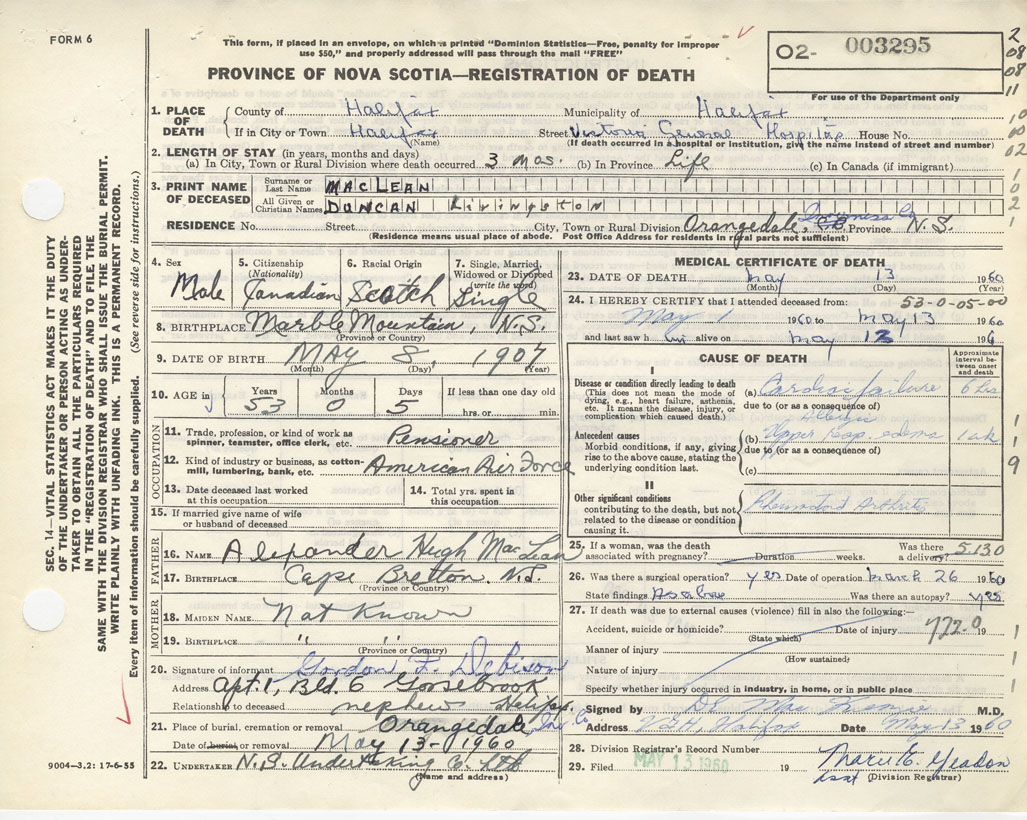 FORM 6
This form, if placed in an envelope, on which is printed "Dominion Statistics—Free, penalty for improper
use $50," and properly addressed will pass through the mail "FREE"
PROVINCE OF NOVA SCOTIA—REGISTRATION OF DEATH
O2- 003295
For use of the Department only
1. PLACE OF DEATH
County of Halifax Municipality of Halifax
If in City or Town Halifax Street Victoria General Hospital House No.
(Name) (If death occurred in a hospital or institution, give the name instead of street and number)
2. LENGTH OF STAY (in years, months and days)
(a) In City, Town or Rural Division where death occurred 3 mos. (b) In Province Life (c) In Canada (if immigrant)
3. PRINT NAME OF DECEASED
Surname or Last Name MACLEAN
All Given or Christian Names DUNCAN Livingston
RESIDENCE No. Street City, Town or Rural Division Orangedale, Inverness Co Province N.S.
(Residence means usual place of abode. Post Office Address for residents in rural parts not sufficient)
4. Sex Male
5. Citizenship (Nationality) Canadian
6. Racial Origin Scotch
7. Single, Married, Widowed or Divorced (write the word) Single
8. BIRTHPLACE Marble Mountain, N.S.
(Province or Country)
9. DATE OF BIRTH MAY 8, 1907
(Month) (Day) (Year)
10. AGE in Years 53 Months 0 Days 5 If less than one day old hrs. or min.
OCCUPATION
11. Trade, profession, or kind of work as spinner, teamster, office clerk, etc. Pensioner
12. Kind of industry or business, as cotton-mill, lumbering, bank, etc. American Air Force
13. Date deceased last worked at this occupation
14. Total yrs. spent in this occupation
15. If married give name of wife or husband of deceased
FATHER
16. NAME Alexander Hugh MacLean
17. BIRTHPLACE Cape Bretton, N.S.
(Province or Country)
MOTHER
18. MAIDEN NAME Not Known
19. BIRTHPLACE " "
(Province or Country)
20. Signature of informant Gordon F.
Address Apt. 1, Bld. 6 Gorsebrook
Relationship to deceased nephew Halifax.
21. Place of burial, cremation or removal Orangedale, Inv. Co
Date of burial or removal May 13- 1960
22. UNDERTAKER N.S. Undertaking Co. Ltd
(Name and address)
MEDICAL CERTIFICATE OF DEATH
23. DATE OF DEATH May 13 1960
(Month) (Day) (Year)
24. I HEREBY CERTIFY that I attended deceased from: 53-0-05-00
May 1 1960 to May 13 1960
and last saw him alive on May 13 196
CAUSE OF DEATH
Approximate interval between onset and death
I
Disease or condition directly leading to death
(This does not mean the mode of dying, e.g., heart failure, asthenia, etc. It means the disease, injury, or complication which caused death.)
(a) Cardiac failure 6 hrs
due to (or as a consequence of)
Allergic
Antecedent causes
Morbid conditions, if any, giving rise to the above cause, stating the underlying condition last.
(b) Upper resp. edema 1 wk
due to (or as a consequence of)
(c)
II
Other significant conditions contributing to the death, but not related to the disease or condition causing it.
Rheumatoid Arthritis
25. If a woman, was the death associated with pregnancy? Duration weeks. Was there a delivery? 5130
26. Was there a surgical operation? yes Date of operation March 26 1960
State findings As above Was there an autopsy? yes
27. If death was due to external causes (violence) fill in also the following:—
Accident, suicide or homicide? Date of injury 19
(State which) 772.0
Manner of injury
(How sustained)
Nature of injury
Specify whether injury occurred in industry, in home, or in public place
Signed by M.D.
Address V.G.H, Halifax Date May 13 1960
28. Division Registrar's Record Number
29. Filed MAY 13 1960 19 Marie E. Yeadon
asst (Division Registrar)
SEC. 14—VITAL STATISTICS ACT MAKES IT THE DUTY
OF THE UNDERTAKER OR PERSON ACTING AS UNDER-
TAKER TO OBTAIN ALL THE PARTICULARS REQUIRED
IN THE "REGISTRATION OF DEATH" AND TO FILE THE
SAME WITH THE DIVISION REGISTRAR WHO SHALL ISSUE THE BURIAL PERMIT.
WRITE PLAINLY WITH UNFADING INK. THIS IS A PERMANENT RECORD.
Every item of information should be carefully supplied. (See reverse side for instructions.)
9004—3.2: 17-6-55